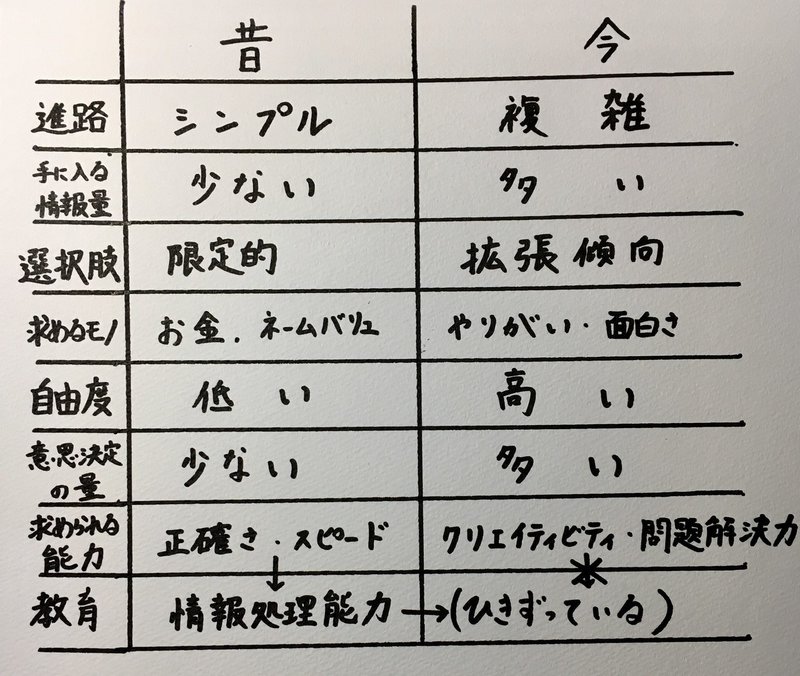 昔 今
進路 シンプル 複雑
手に入る
情報量 少ない 多い
選択肢 限定的 拡張傾向
求めるモノ お金、ネームバリュ やりがい・面白さ
自由度 低い 高い
意思決定
の量 少ない 多い
求められる
能力 正確さ・スピード クリエイティビティ・問題解決力
教育 情報処理能力 → (ひきずっている)